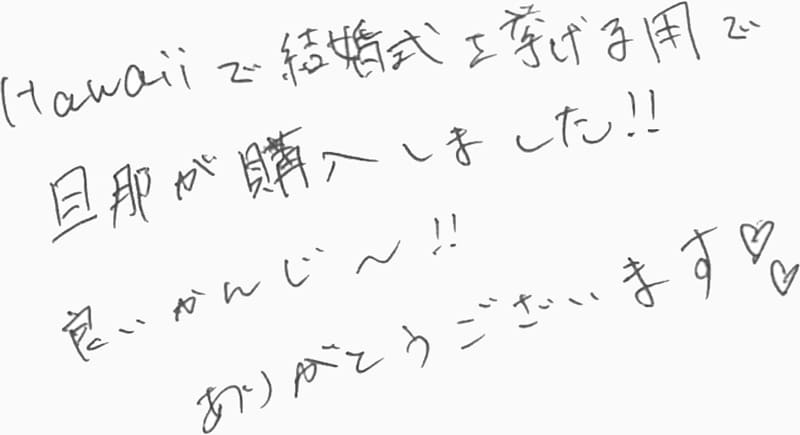 Hawaiiで結婚式を挙げる用で
旦那が購入しました!!
良いかんじ～!!
ありがとうございます♡♡